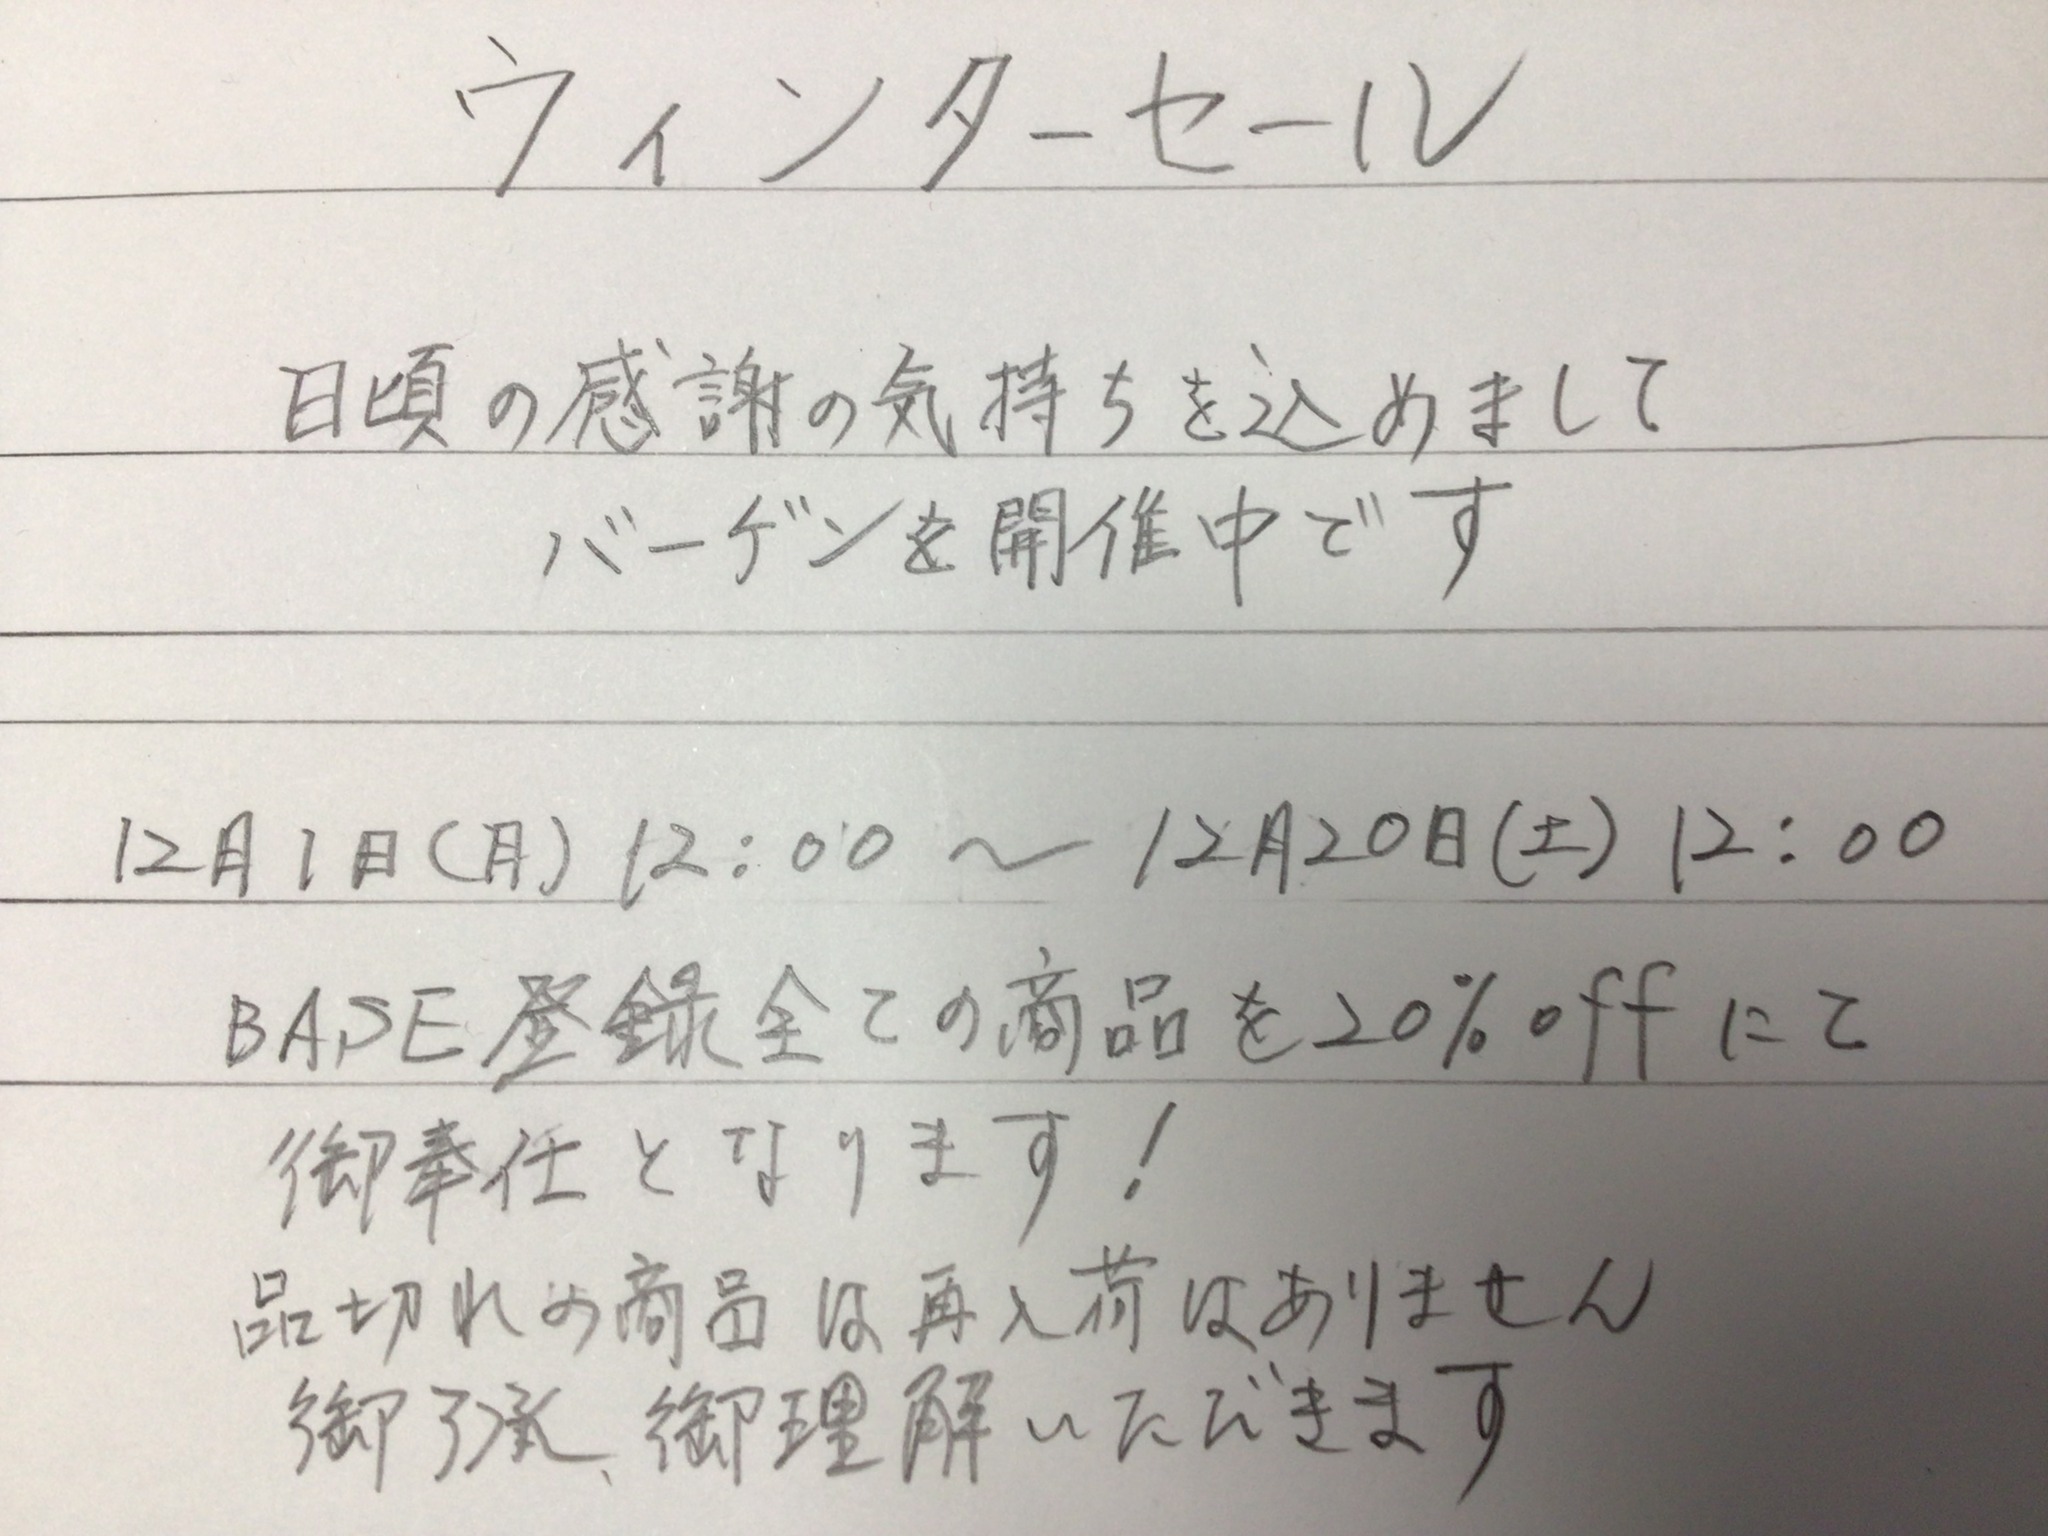 ウィンターセール
日頃の感謝の気持ちを込めまして
バーゲンを開催中です
12月1日(月) 12:00 〜 12月20日(土) 12:00
BASE登録全ての商品を20%offにて
御奉仕となります!
品切れの商品は再入荷はありません
御了承、御理解いただきます